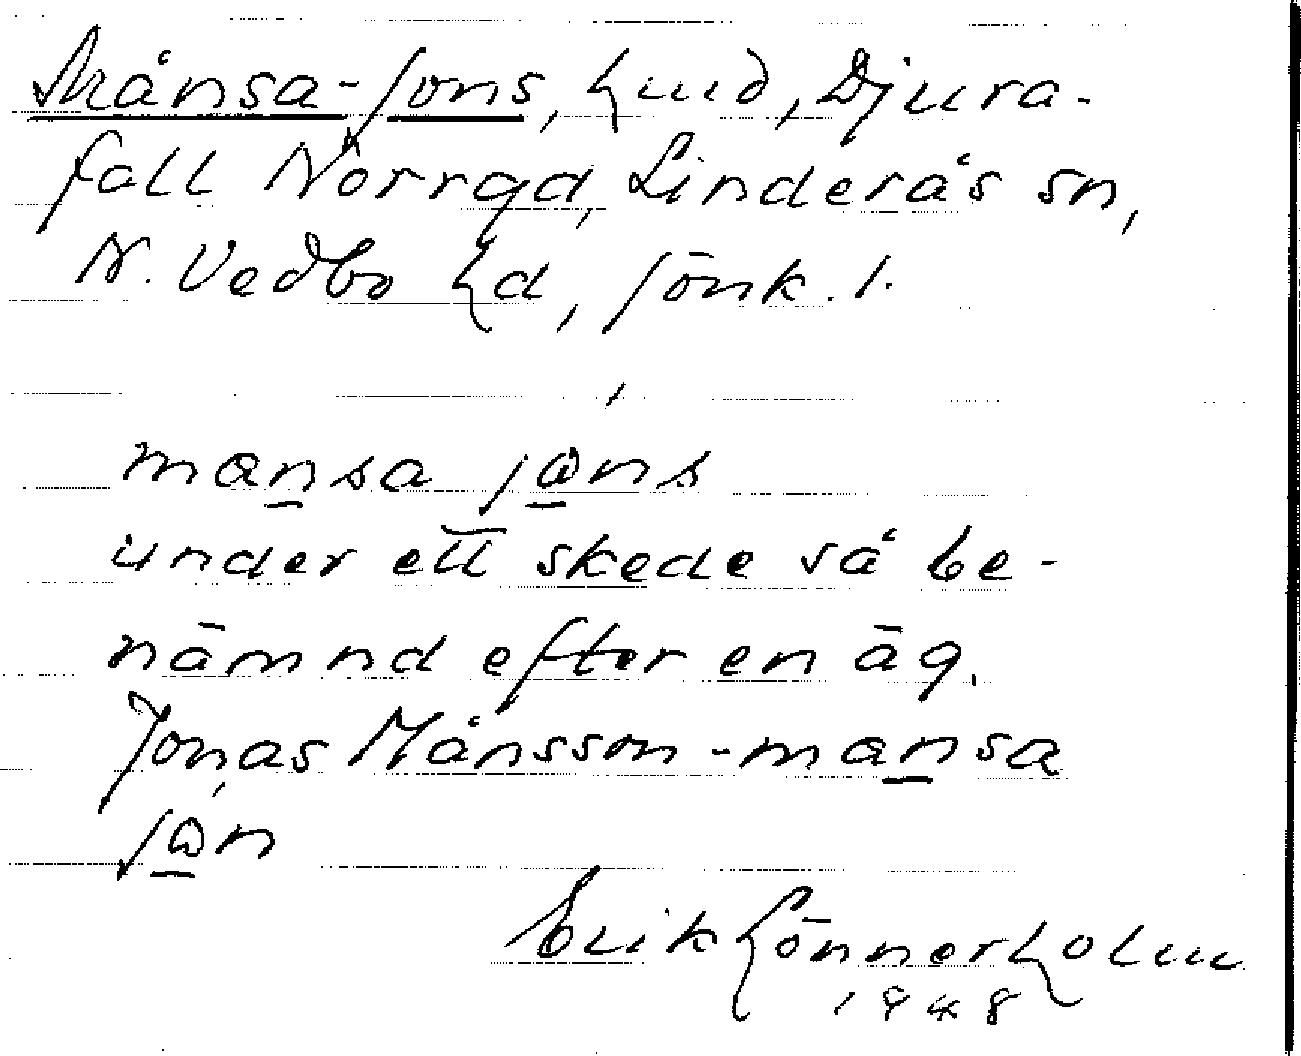 Månsa-Jons, hmd, Djura-
fall Norrgd, Linderås sn,
N. Vedbo hd, Jönk. l.
mansa jɷns
under ett skede så be-
nämnd efter en äg.
Jonas Månsson - mansa
jɷn
Erik Lönnerholm
1948